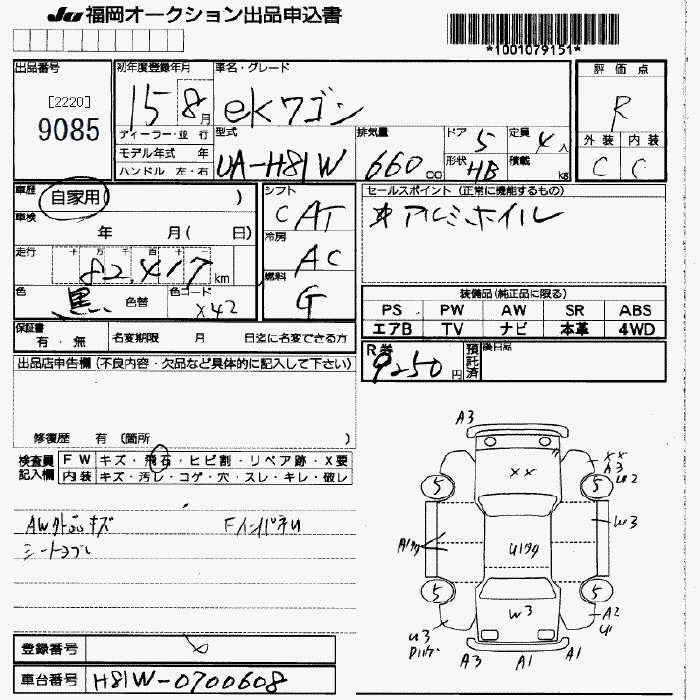 JU 福岡オークション出品申込書
*1001079151*
出品番号
[2220]
9085
初年度登録年月
15 8月
車名・グレード
eKワゴン
評価点
R
外装 内装
C C
ディーラー・並 行
モデル年式 年
ハンドル 左・右
型式
UA-H81W
排気量
660 cc
ドア 5
形状 HB
定員 4人
積載 kg
車歴 自家用 ( )
車検 年 月( 日)
走行 十 万 千 百 十 一
82,417 km
色 黒 色替
色コード X42
シフト
C AT
冷房
AC
燃料
G
セールスポイント (正常に機能するもの)
アルミホイル
装備品(純正品に限る)
PS PW AW SR ABS
エアB TV ナビ 本革 4WD
保証書
有・無
名変期限 月 日迄に名変できる方
R券
9250円
預託済
後日届
出品店申告欄(不良内容・欠品など具体的に記入して下さい)
修復歴 有 (箇所 )
検査員記入欄
FW キズ・飛石・ヒビ割・リペア跡・X要
内装 キズ・汚レ・コゲ・穴・スレ・キレ・破レ
AW外品キズ FインパネU
シートヨゴレ
A3
XX
A3
U2
XX
5 5
W3
A1
U1
W3
5 5
A2
U1
U3
A3 A1 A1
登録番号
車台番号 H81W-0700608